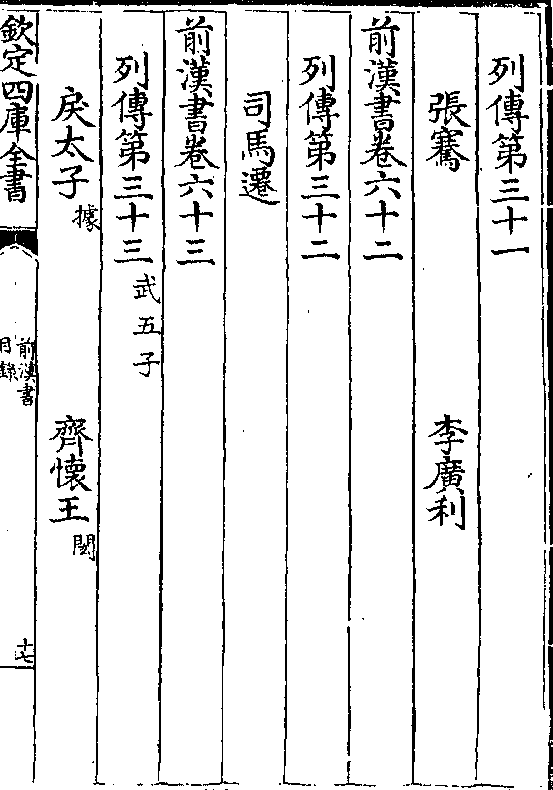 列傳第三十一
張騫　李廣利
前漢書卷六十二
列傳第三十二
司馬遷
前漢書卷六十三
列傳第三十三 武五子
戾太子 據　齊懷王 閎
欽定四庫全書
前漢書
目錄
十七